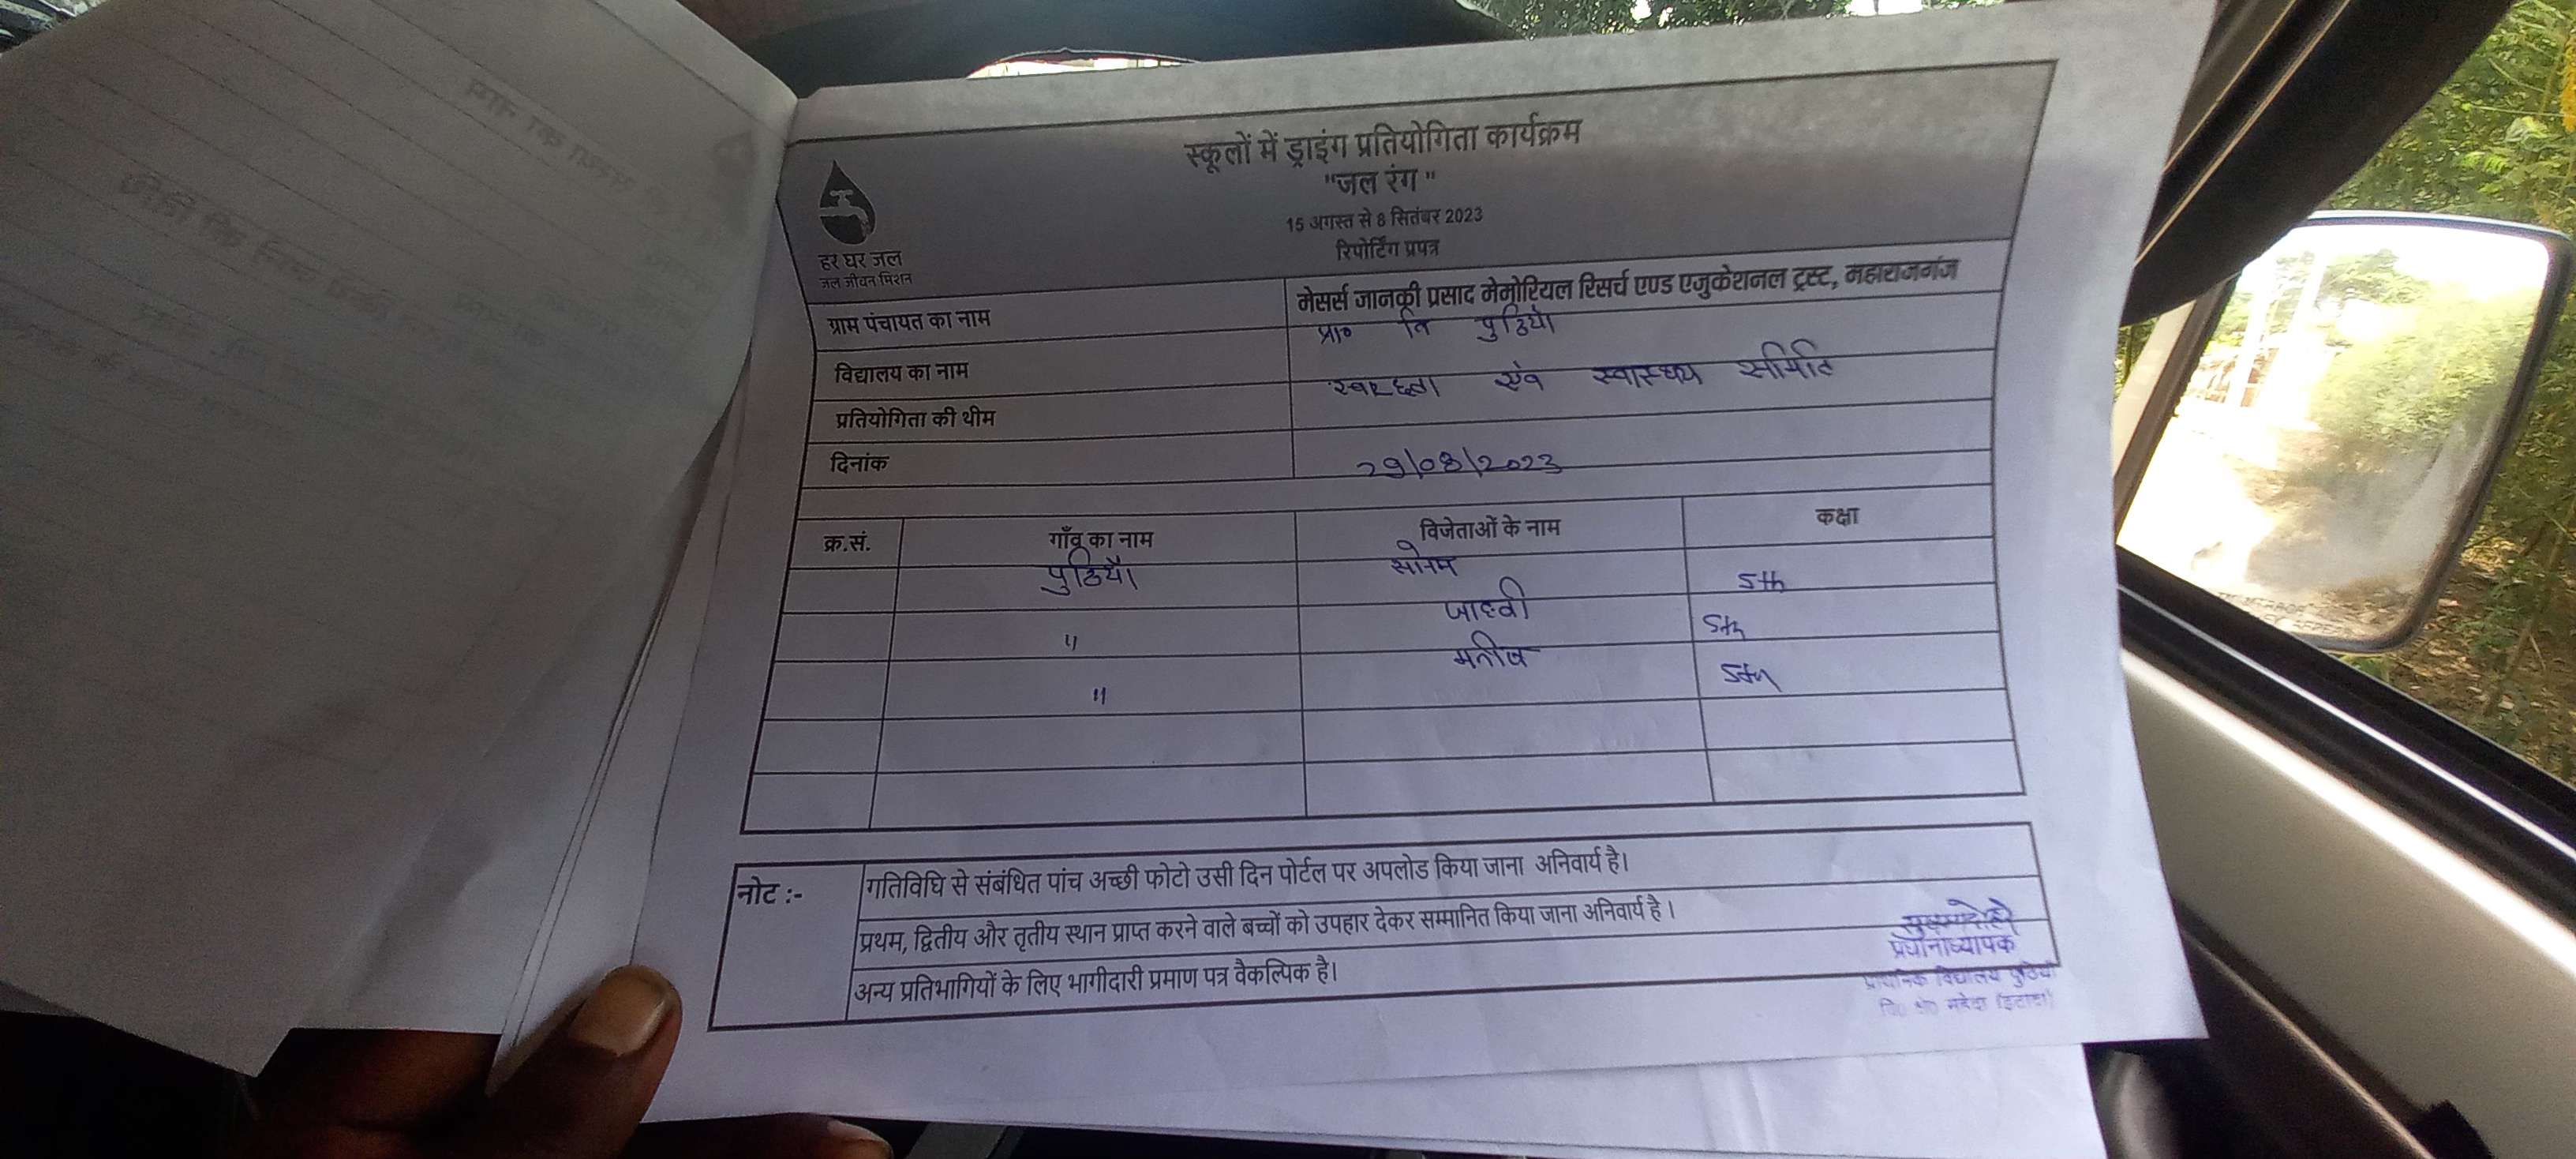 स्कूलों में ड्राइंग प्रतियोगिता कार्यक्रम
"जल रंग "
15 अगस्त से 8 सितंबर 2023
रिपोर्टिंग प्रपत्र
हर घर जल
जल जीवन मिशन
मेसर्स जानकी प्रसाद मेमोरियल रिसर्च एण्ड एजुकेशनल ट्रस्ट, महाराजगंज
ग्राम पंचायत का नाम
प्रा० वि पुठियाँ
विद्यालय का नाम
स्वच्छता एंव स्वास्थ्य समिति
प्रतियोगिता की थीम
दिनांक 29/08/2023
क्र.सं. गाँव का नाम विजेताओं के नाम कक्षा
पुठियाँ सोनम 5th
" जाह्वी 5th
" 5th
नोट :- गतिविधि से संबंधित पांच अच्छी फोटो उसी दिन पोर्टल पर अपलोड किया जाना अनिवार्य है।
प्रथम, द्वितीय और तृतीय स्थान प्राप्त करने वाले बच्चों को उपहार देकर सम्मानित किया जाना अनिवार्य है ।
अन्य प्रतिभागियों के लिए भागीदारी प्रमाण पत्र वैकल्पिक है।
प्रधानाध्यापक
प्राथमिक विद्यालय पुठियाँ